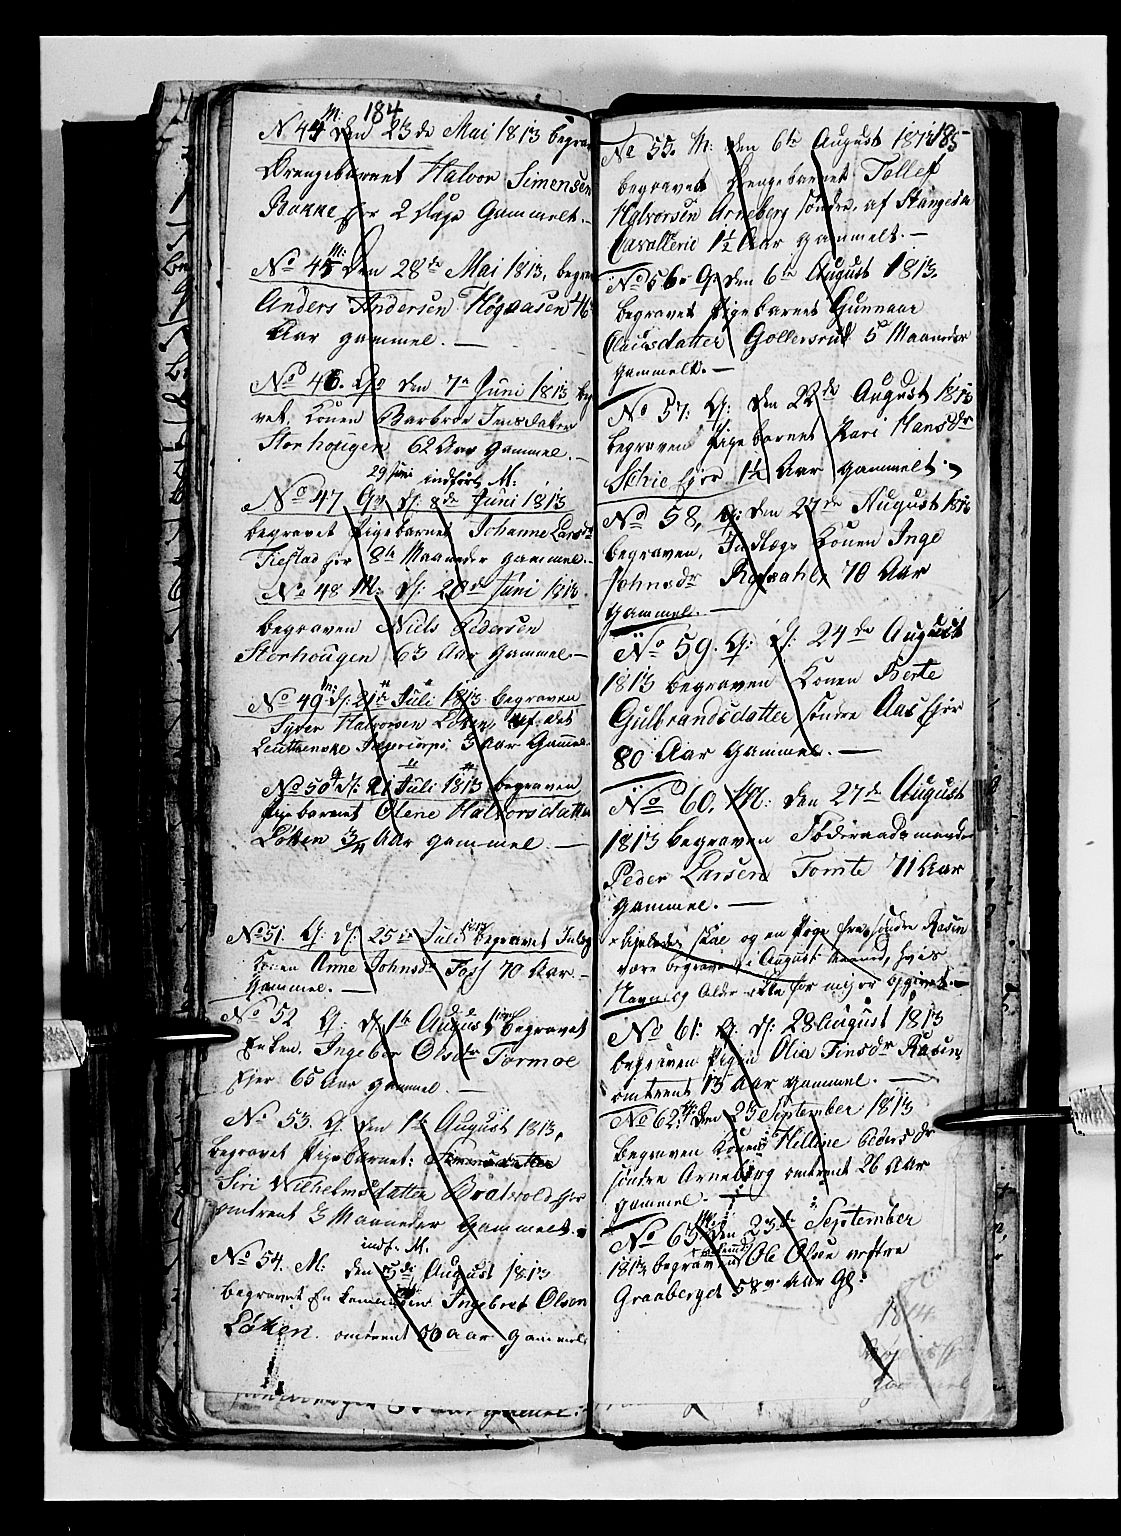 184
N 44 M: den 23de Mai 1813 begra
Drengebarnet Halvor Simensen
Bakke 2 Dage Gammelt.
No 45 M: den 28de Mai 1813, begra
Anders Andersen Högaasen 46
Aar gammel. —
No 46. Q den 7n Juni 1813 beg
vet, Konen Barbroe Jensdatter
Storhougen 62 Aar Gammel. —
29 Juni indfört M:
No 47 Q d: 8de Juni 1813
begravet Pigebarnet Johanne Larsdr
8te Maaneder gammel. —
No 48 M: d: 20de Juni 1813
begraven Niels Pedersen
Storhougen 63 Aar Gammel —
No 49 M: d: 21de Juli 1813 begraven
Syver Halvorsen Löken, af det
3 Aar Gammel
No 50 Q d: 21 Juli 1813 begraven
Pigebarnet Olene Halvorsdatter
Löken 3/4 Aar gammel. —
No 51 Q: d: 25de Juli 1813 begravet Inderst
Konen Anne Johnsdr Foss 70 Aar —
Gammel. —
No 52 Q: d: 1te August 1813 begravet
Enken. Ingebor Olsdr Tormoe
Ejer 65 Aar gammel —
No 53. Q. den 1te August 1813,
begravet Pigebarnet:
Siri Wilhelmsdatter Bratvold
omtrent 3 Maaneder Gammelt.
indf. M.
No 54. M: den 5de August 1813
begravet Enkemanden Ingebret Olsen
Löken. omtrent 60 aar gammel
185
No 55. M: den 6te August 1813
begravet Drengebarnet Tollef
Halvorsen Arneberg söndre, af Stangeske
Cavallerie 1 1/2 Aar gammelt. —
No 56 Q: den 6te August 1813.
begravet Pigebarnet Gunnaar
Clausdatter Gollersrud 5 Maaneder
gammelt. —
No 57: Q: den 22de August 1813
begraven Pigebarnet Kari Hansdr
Schie 1 1/4 Aar gammelt. —
No 58, Q: den 27de August 1813
begraven, Indlægs Konen Inge
Johnsdr 70 Aar
gammel. —
No 59. Q: d: 24de August
1813 begraven Konen Berte
Gulbrandsdatter söndre Aas
80 Aar gammel. —
No 60. M: den 27de August
1813 begraven Föderaadsmanden
Peder Larsen Tomte 71 Aar
gammel. —
skal og en Pige fra söndre Rasin
være begravet i August maaned, hvis
Navn og Alder ikke for mig er opgivet. —
No 61: Q: d: 28 August 1813
begraven Pigen Olia Finsdr Rasin,
omtrent 13 Aar gammel. —
No 62: Q: den 23 September 1813
begraven Konen Helline Pedersdr
söndre Arneberg omtrent 26 Aar
gammel. —
No 63 M: den 23de September
1813 begraven Ole Olsen vestre
Graaberget 58 Aar Gl:
1814